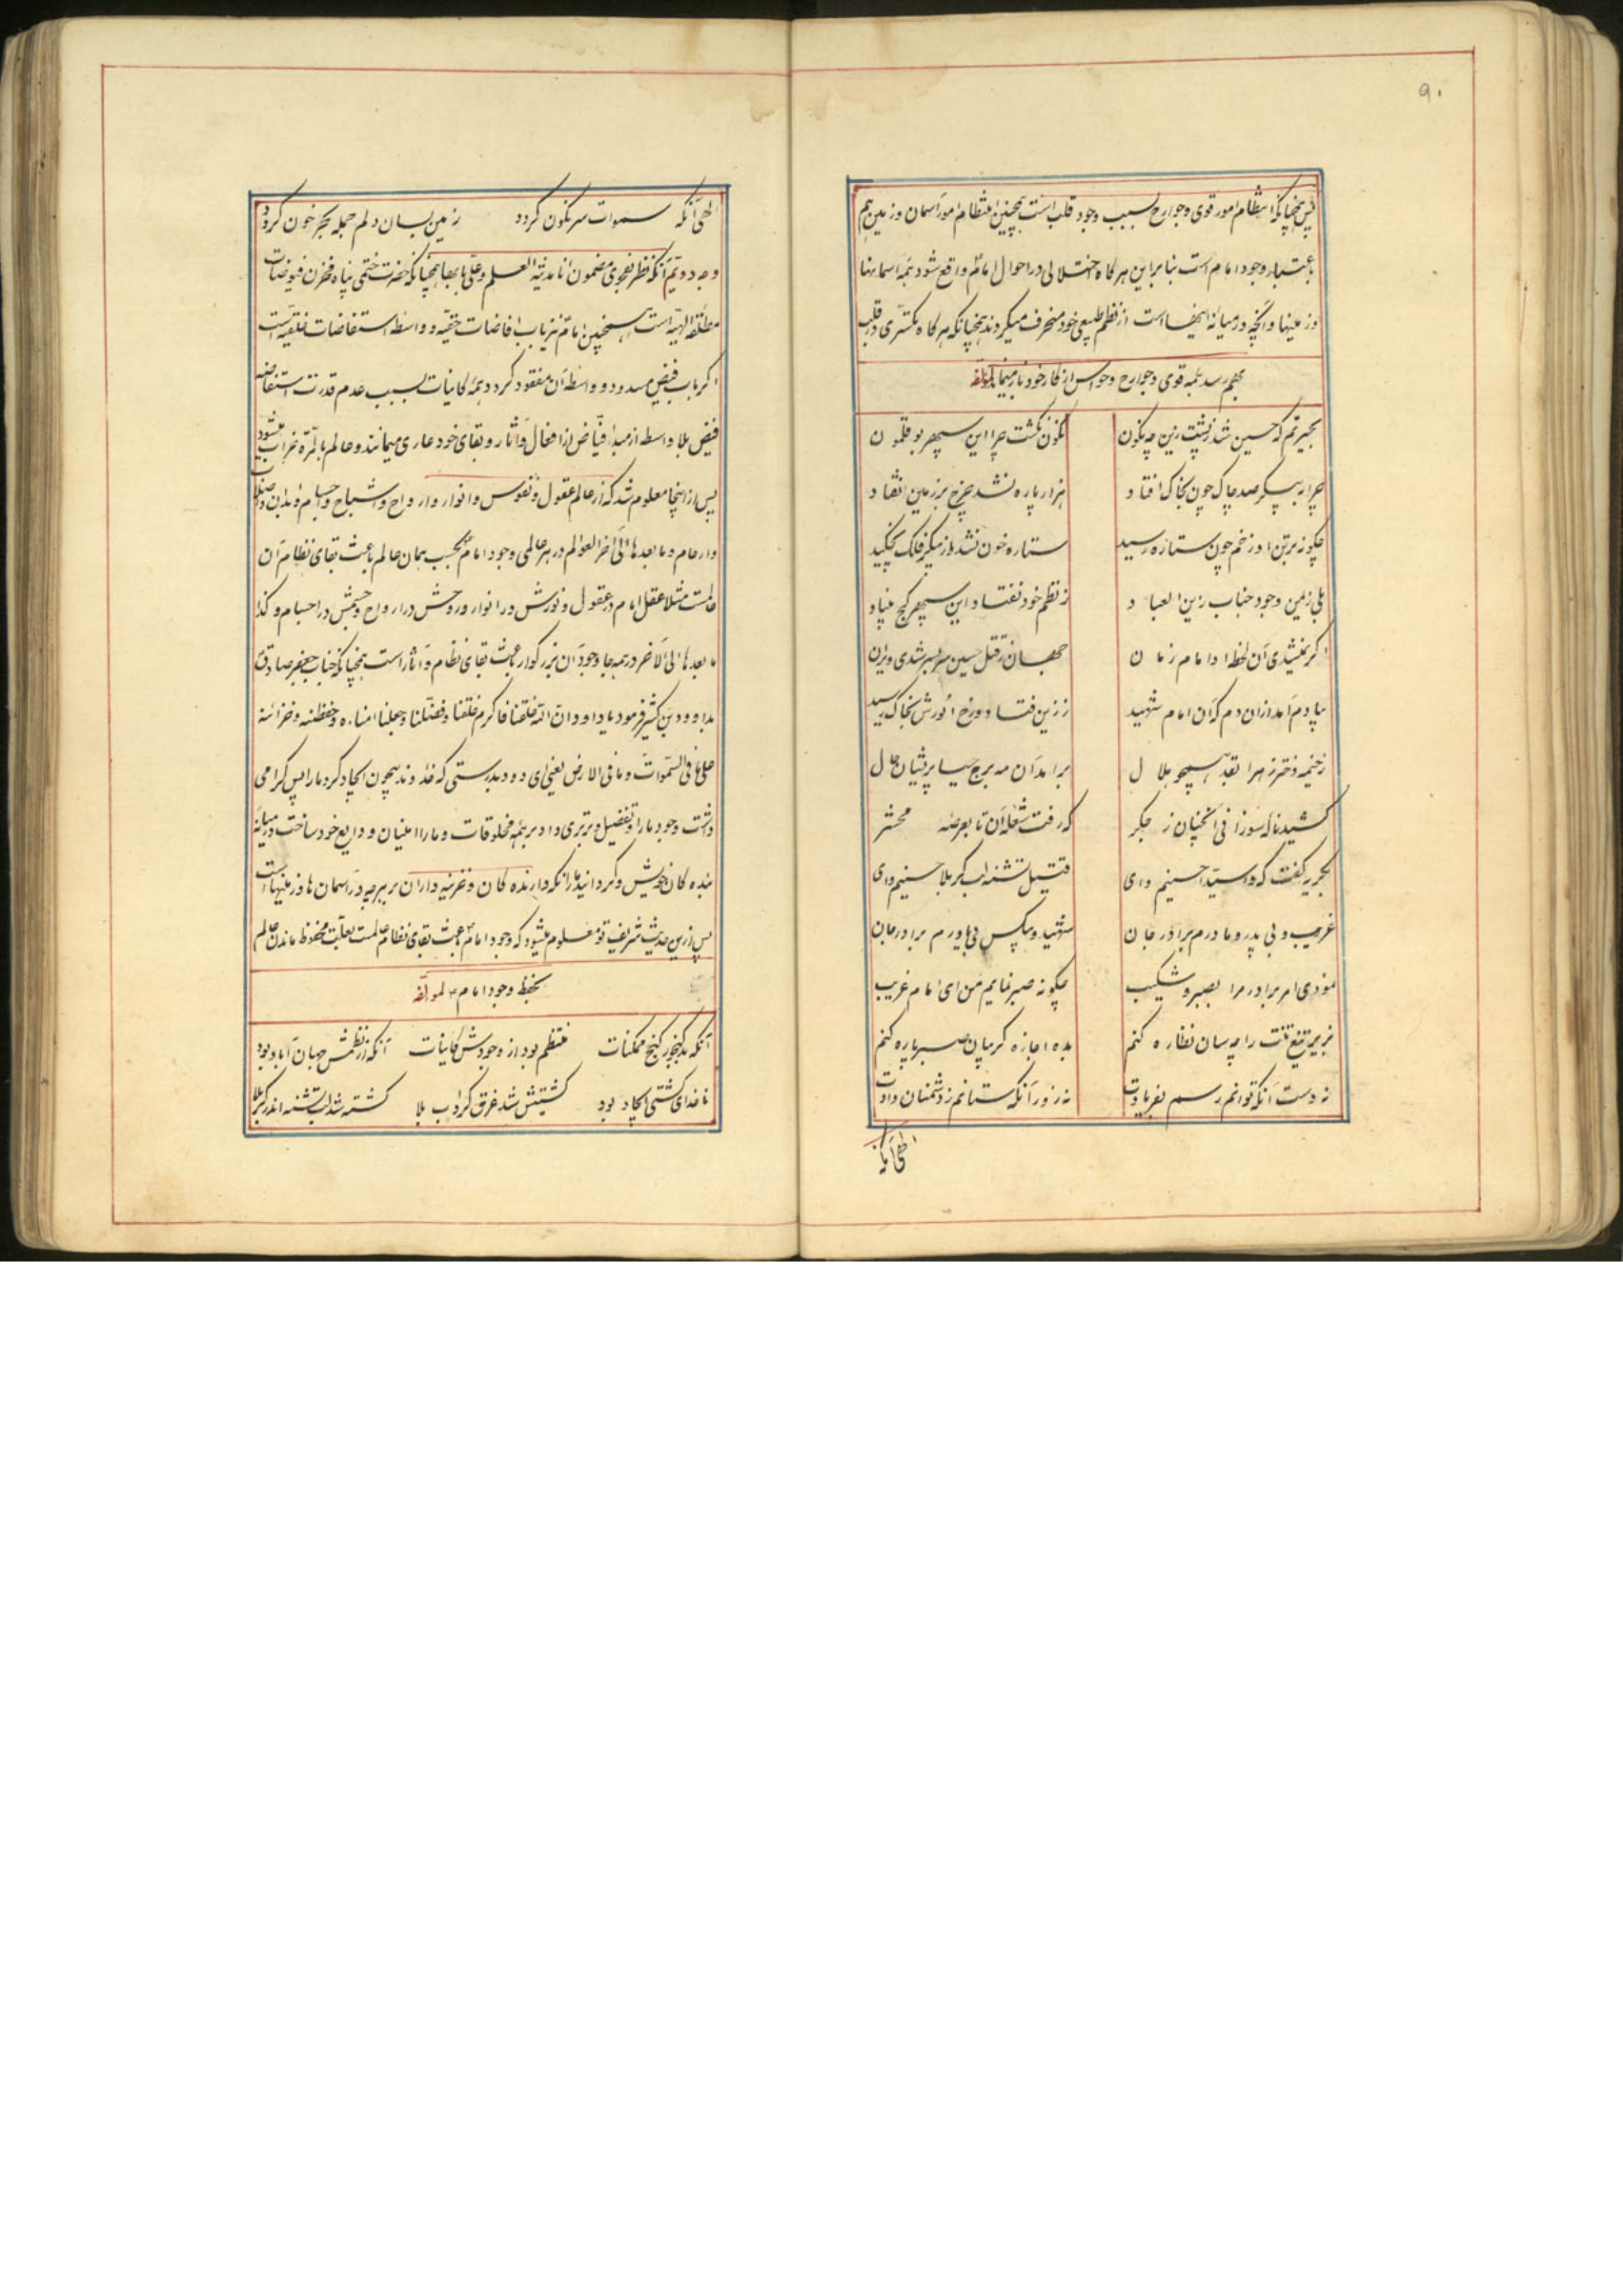 ۹۰
پس همچنانکه انتظام امور قوی و جوارح بسبب وجود قلب است همچنین انتظام امور آسمان و زمین هم
باعتبار وجود امام است بنابراین هر گاه اختلالی در احوال امام واقع شود همه آسمانها
و زمینها و آنچه در میانه اینهاست از نظم طبیعی خود منحرف میگردند همچنانکه هر گاه تکسری در قلب
بهم رسد همه قوی و جوارح و حواس از کار خود باز میماند لمؤلفه
بحیرتم که حسین شد ز پشت زین چه نگون نگون نگشت چرا این سپهر بوقلمون
چرا پیکر صد چاک چون بخاک افتاد هزار پاره نشد چرخ بر زمین افتاد
چگونه بر تن او زخم چون ستاره رسید ستاره خون نشد از پیکر فلک نچکید
بلی ز یمن وجود جناب زین العباد ز نظم خود نفتاد این سپهر کج بنیاد
اگر نمیشدی آن لحظه او امام زمان جهان ز قتل حسین سر بسر شدی ویران
بیادم آمد از آن دم که آن امام شهید ز زین فتاد و رخ انورش بخاک رسید
ز خیمه دختر زهرا بقد همچو هلال برآمد آن مه برج حیا پریشان حال
کشید ناله سوزانی آنچنان ز جگر که رفت شعله آن تا بعرصه محشر
بگریه گفت که وا سیدا حسینم وای قتیل تشنه لب کربلا حسینم وای
غریب و بی پدر و مادرم برادر جان شهید و بیکس و بی یاورم برادر جان
نمودی امر برادر مرا بصبر و شکیب چگونه صبر نمایم من ای امام غریب
بزیر تیغ تنت را چه سان نظاره کنم بده اجازه گریبان صبر پاره کنم
نه دست آنکه توانم رسم بفریادت نه زور آنکه ستانم ز دشمنان دادت
الهی آنکه
الهی آنکه سموات سرنگون گردد زمین بسان دلم جمله بحر خون گردد
وجه دویم آنکه نظر بفحوی مضمون انا مدینة العلم و علی بابها همچنانکه حضرت ختمی پناه مخزن فیوضات
مطلقه الهیه است همچنین امام نیز باب افاضات حقیه و واسطه استفاضات خلقیه است
اگر باب فیض مسدود و واسطه آن مفقود گردد همه کاینات بسبب عدم قدرت استفاضه
فیض بلا واسطه از مبدء فیاض از افعال و آثار و بقای خود عاری میمانند و عالم بالمره خراب میشود
پس از اینجا معلوم شد که از عالم عقول و نفوس و انوار و ارواح و اشباح و اجسام و ابدان و اصلاب
و ارحام و ما بعدها الی آخر العوالم در هر عالمی وجود امام بحسب همان عالم باعث بقای نظام آن
عالمست مثلا عقل امام در عقول و نورش در انوار و روحش در ارواح و جسمش در اجسام و کذا
ما بعدها الی الآخر در همه جا وجود آن بزرگوار باعث بقای نظام و آثار است همچنانکه جناب جعفر صادق
بداوود بن کثیر فرمود یا داود ان الله خلقنا فاکرم خلقنا و فضلنا و جعلنا امناءه و حفظته و خزانه
علی ما فی السموات و ما فی الارض یعنی ای داود بدرستی که خداوند بیچون ایجاد کرد ما را پس گرامی
داشت وجود ما را و تفضیل و برتری داد بر همه مخلوقات و ما را امنیان و ودایع خود ساخت در میانه
بنده گان خویش و گردانید ما را نگه دارنده گان و خزینه داران بر هر چه در آسمان ها و زمینهاست
پس ازین حدیث شریف تو معلوم میشود که وجود امام باعث بقای نظام عالمست بعلت محفوظ ماندن عالم
بحفظ وجود امام لمؤلفه
آنکه بد گنجور گنج ممکنات منتظم بود از وجودش کاینات آنکه از نظمش جهان آباد بود
ناخدای کشتی ایجاد بود کشتیش شد غرق گرداب بلا کشته شد لب تشنه اندر کربلا